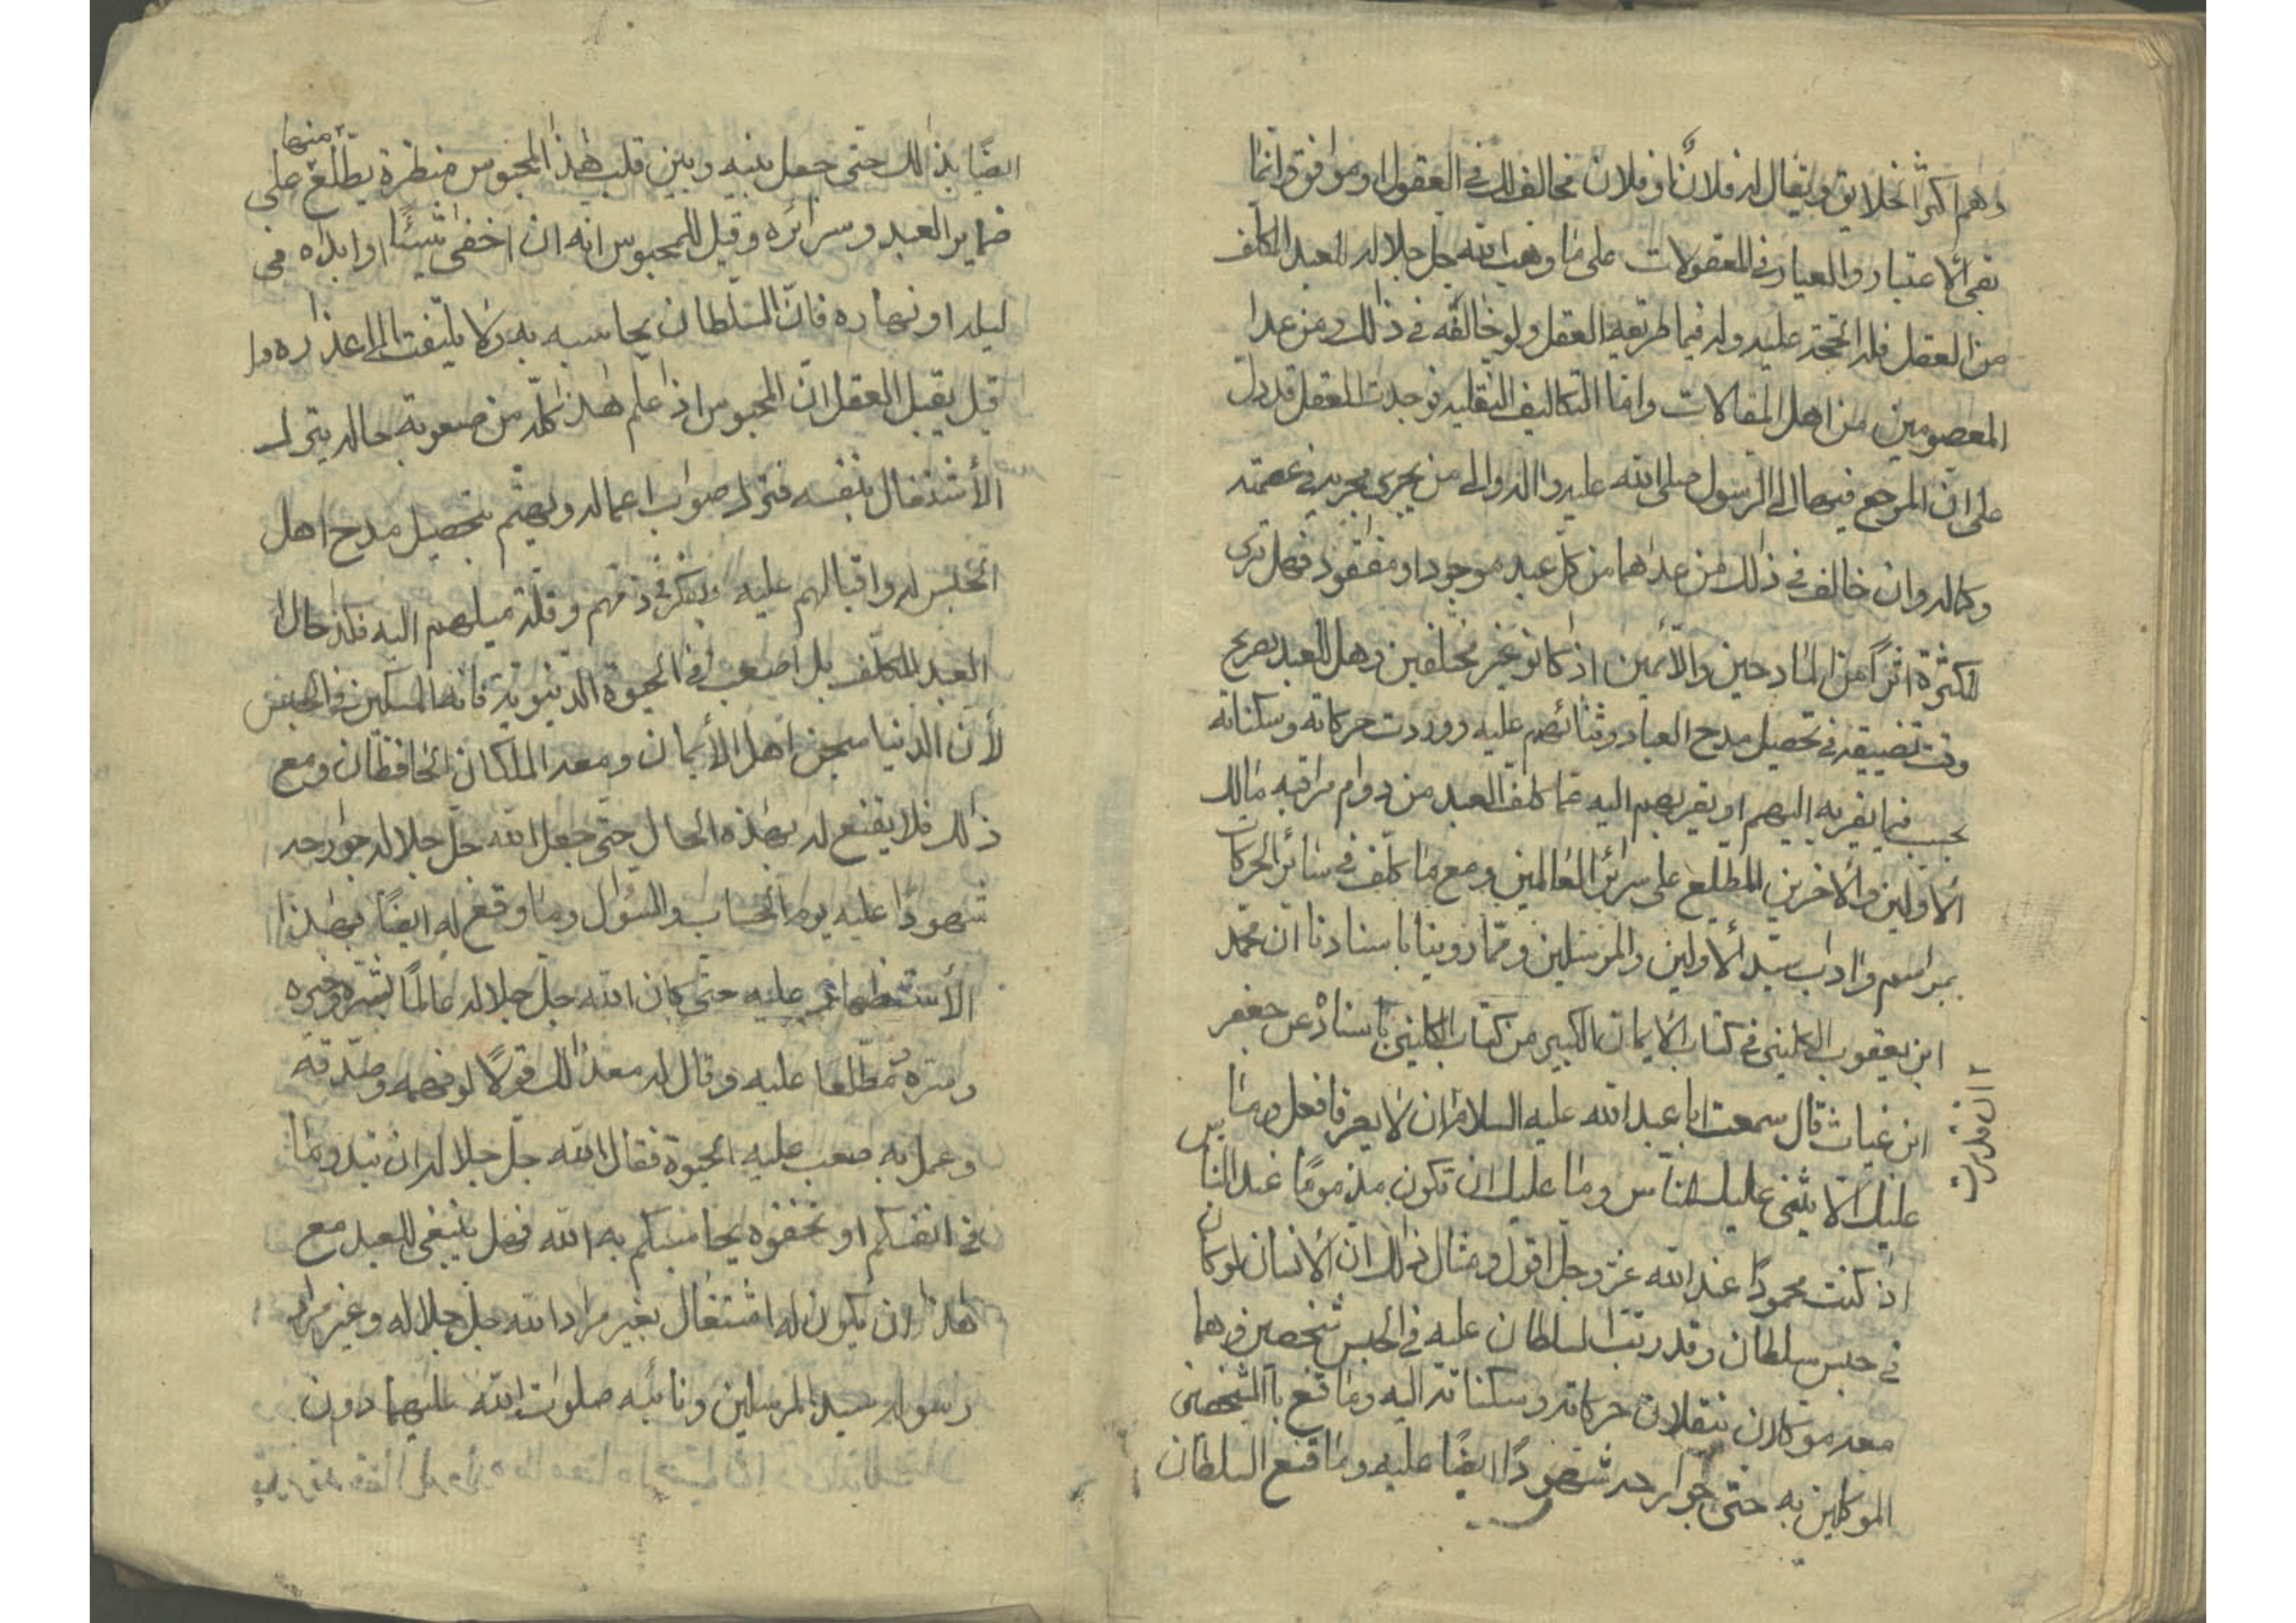 وهم اكثر الخلايق ويقال له فلانًا وفلان مخالف لك في العقول او موافق وانما
بقي الاعتبار والعيار في المعقولات على ما وهب الله جل جلاله للعبد المكلف
من العقل فله الحجة عليه وله فيما طريقه العقل ولو خالفه في ذلك من عدا
المعصومين من اهل المقالات واما التكاليف النقليه فوجدت العقل قد دل
على ان المرجع فيها الى الرسول صلى الله عليه واله والى من يجري مجريه في عصمته
وكماله وان خالف في ذلك من عداهما من كل عبد موجود او مفقود فهل ترى
للكثرة اثرًا من المادحين والائمين اذ كانو غير مختلفين وهل للعبد بصريح
وقت تضييقه في تحصيل مدح العباد وثنائهم عليه ووردت حركاته وسكناته
بحسب فيما يقربه اليهم او يقربهم اليه عما كلف العبد من دوام مراقبه مالك
الاولين والاخرين المطلع على سرائر العالمين ومع ما كلف في سائر الحركات
بمراسم واداب سيد الاولين والمرسلين ومما روينا باسنادنا ان محمد
ابن يعقوب الكليني في كتاب الايمان الكبير من كتاب الكليني باسناده عن جعفر
ابن غياث قال سمعت ابا عبد الله عليه السلام ان لا يعرفا فعل وما
ان قدرت
عليك الا يثنى عليك الناس وما عليك ان تكون مذمومًا عند الناس
اذ كنت محمودًا عند الله عز وجل اقول ومثال ذلك ان الانسان لو كان
في حبس سلطان وقد رتب السلطان عليه في الحبس شخصين وهما
معه موكلان ينقلان حركاته وسكناته اليه وما قنع بالشخصين
الموكلين به حتى جوارحه شهودًا ايضًا عليه وما قنع السلطان
ايضًا بذالك حتى جعل بينه وبين قلب هذا المحبوس منظرة يطلع منها على
ضماير العبد وسرائره وقيل للمحبوس انه ان اخفى شيئًا او ابداه في
ليله او نهاره فان السلطان يحاسبه به ولا يلتفت الى اعذاره
قيل يقبل العقل ان المحبوس اذا علم هذا كله من صعوبة حاله يترك
الأشتغال بنفسه فترك صواب اعماله ويهتم بتحصيل مدح اهل
الحبس له واقبالهم عليه ويفكر في ذمهم وقلة ميلهم اليه فكذا حال
العبد المكلف بل اصعب في الحيوة الدنيوية فانه المسكين في الحبس
لأن الدنيا سجن اهل الأيمان ومعه الملكان الحافظان ومع
ذالك فلا يقنع له بهذه الحال حتى جعل الله جل جلاله جوارحه
شهودًا عليه يوم الحساب والسؤال وما وقع له ايضًا بهذا
الأستظهار عليه حتى كان الله جل جلاله عالمًا بسره وخبره
وسره مطلعا عليه وقال له معذالك قولًا لو فهمه وصدقه
وعمل به صعب عليه الحيوة فقال الله جل جلاله ان تبدو ما
في انفسكم او تخفوه يحاسبكم به الله فهل ينبغي للعبد مع
هذا ان يكون له اشتغال بغير مراد الله جل جلاله وغير مراد
رسوله سيد المرسلين ونائبه صلوات الله عليهما دون